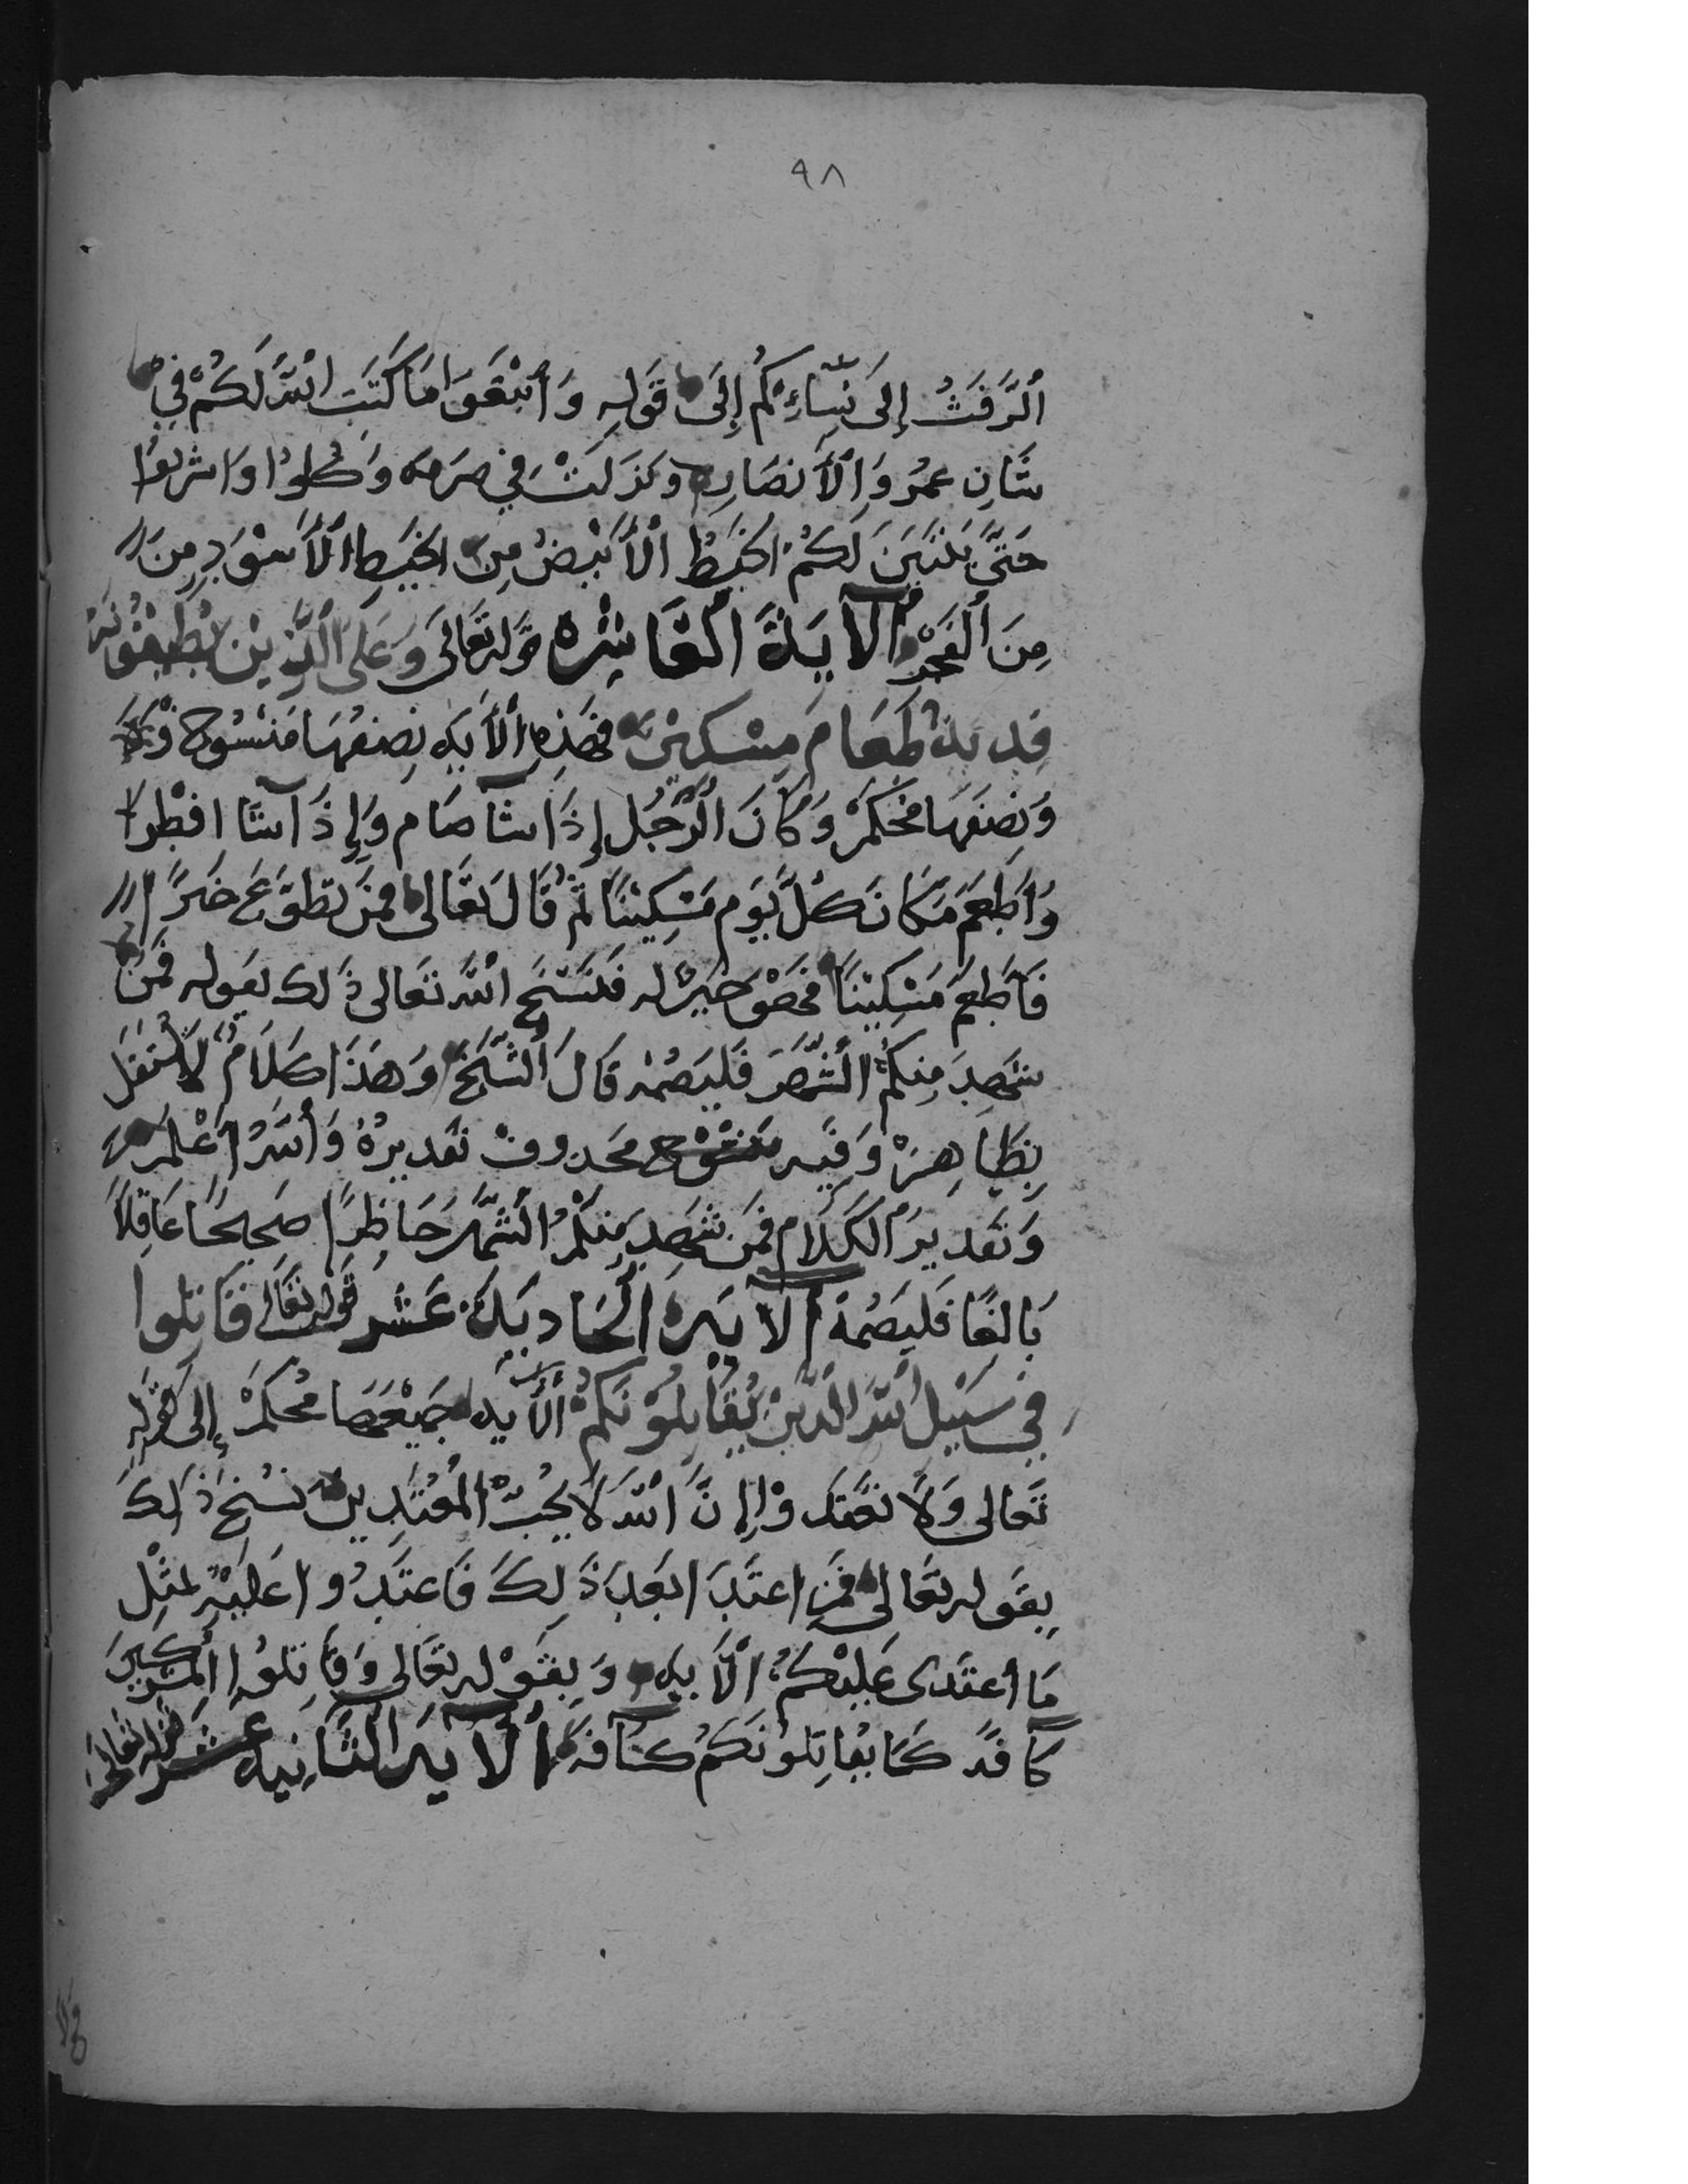 ٩٨
ٱلرَّفَثُ إِلَى نِسَّاءِكُمْ إِلَى قَولِهِ وَٱبْتَغَوَا مَا كَتَبَ ٱللَّهُ لَكُمْ فِي
شَانِ عمرُ وَٱلْأَنصَارِ وكذلك في صرمه وَكُلوا وَاشربوُا
حَتَّى يَتَبَيَنَ لَكُمْ الخَيطُ ٱلْأَبْيَضُ مِنَ الخَيطِ ٱلْأَسْوَدِ مِنَ
مِنَ ٱلْفَجْرِ الآيَةُ الْعَاشِرة قَوله تَعَالَى وَعَلَى ٱلَّذِينَ يُطِيقُونَهُ
فِديَةٌ طَعَامَ مِسْكِينَ فَهَذِهِ ٱلْأَيَة نِصفُهَا مَنْسُوخ
وَنِصفَهَا مُحْكَمْ وَكَانَ الرَّجُل إِذَا شآ صَام وَإِذَا شآ افْطَرَ
وَاطْعَمَ مَكَانَ كُلَّ يَوَم مَسْكِينًا ثُمَّ قَالَ تَعَالى فمَن تطَوَّعَ خَيرًا
فَأَطْعَمَ مَسْكِينًا فَهْوَ خَيرٌ له فَنَسَخَ ٱللَّه تَعَالى ذَلك بقوله فَمَنْ
شَهِدَ مِنكُمُ ٱلشَّهرَ فَليَصُمْه قَالَ ٱلشَّيَخُ وَهَذَا كَلَامٌ لَا يَسْتَقِل
بِظَاهِرْه وَفِيَه منسوخ محَدوف تَقديرُهُ وَٱللَّهُ أَعْلَم
وَتَقديرُ الكَلَام فَمَن شَهِدَ مِنكُمُ ٱلشَّهْرَ حَاظِرًا صَحِيحًا عَاقِلًا
بَالِغًا فَليَصُمْهُ ٱلآيَة الحَاديَةَ عَشر قَوله تعَالى قَاتلوا
فِي سَبِيلِ ٱللَّهِ الَّذِينَ يُقَاتِلُوْنَكُمْ ٱلْأَيَة جَمِيْعَهَا مُحْكَمْ إِلى قَوْلِهِ
تَعَالى وَلَا تَعْتَدوْا إِنَّ ٱللَّهَ لَا يُحِبُّ الْمُعْتَدِينَ نسُخَ ذَلِكَ
بِقَوله تعَالى فَمَنِ اعتَدَا بَعِدَ ذَلِكَ فَاعتَدُوا عَليْهِ بمثْلِ
مَا ٱعتَدى عَلَيْكُمُ ٱلْأَيَة وَبِقَوْله تَعَالى وَقَاتلوُا المُشركِينَ
كَآفَةً كَمَا يقَاتِلوُنَكُمْ كَآفَة ٱلآيَة الثَّانِيَة عشر قَوله تَعَالَى